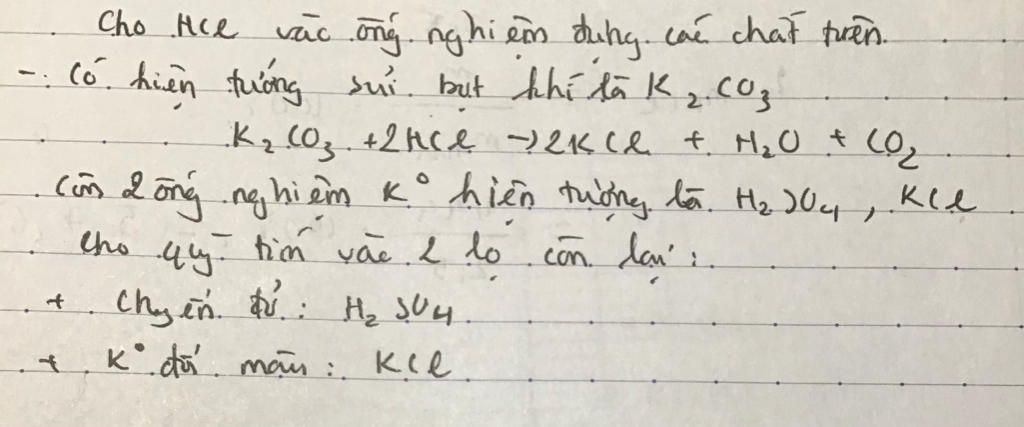 Cho HCl vào ống nghiệm đựng các chất trên.
-. Có hiện tượng sủi bụt khí là K₂CO₃
K₂CO₃ + 2HCl → 2KCl + H₂O + CO₂
Còn 2 ống nghiệm K° hiện tượng là H₂SO₄, KCl
Cho quỳ tím vào 2 lọ còn lại:
+ Chuyển đỏ: H₂SO₄
+ K° đổi màu: KCl